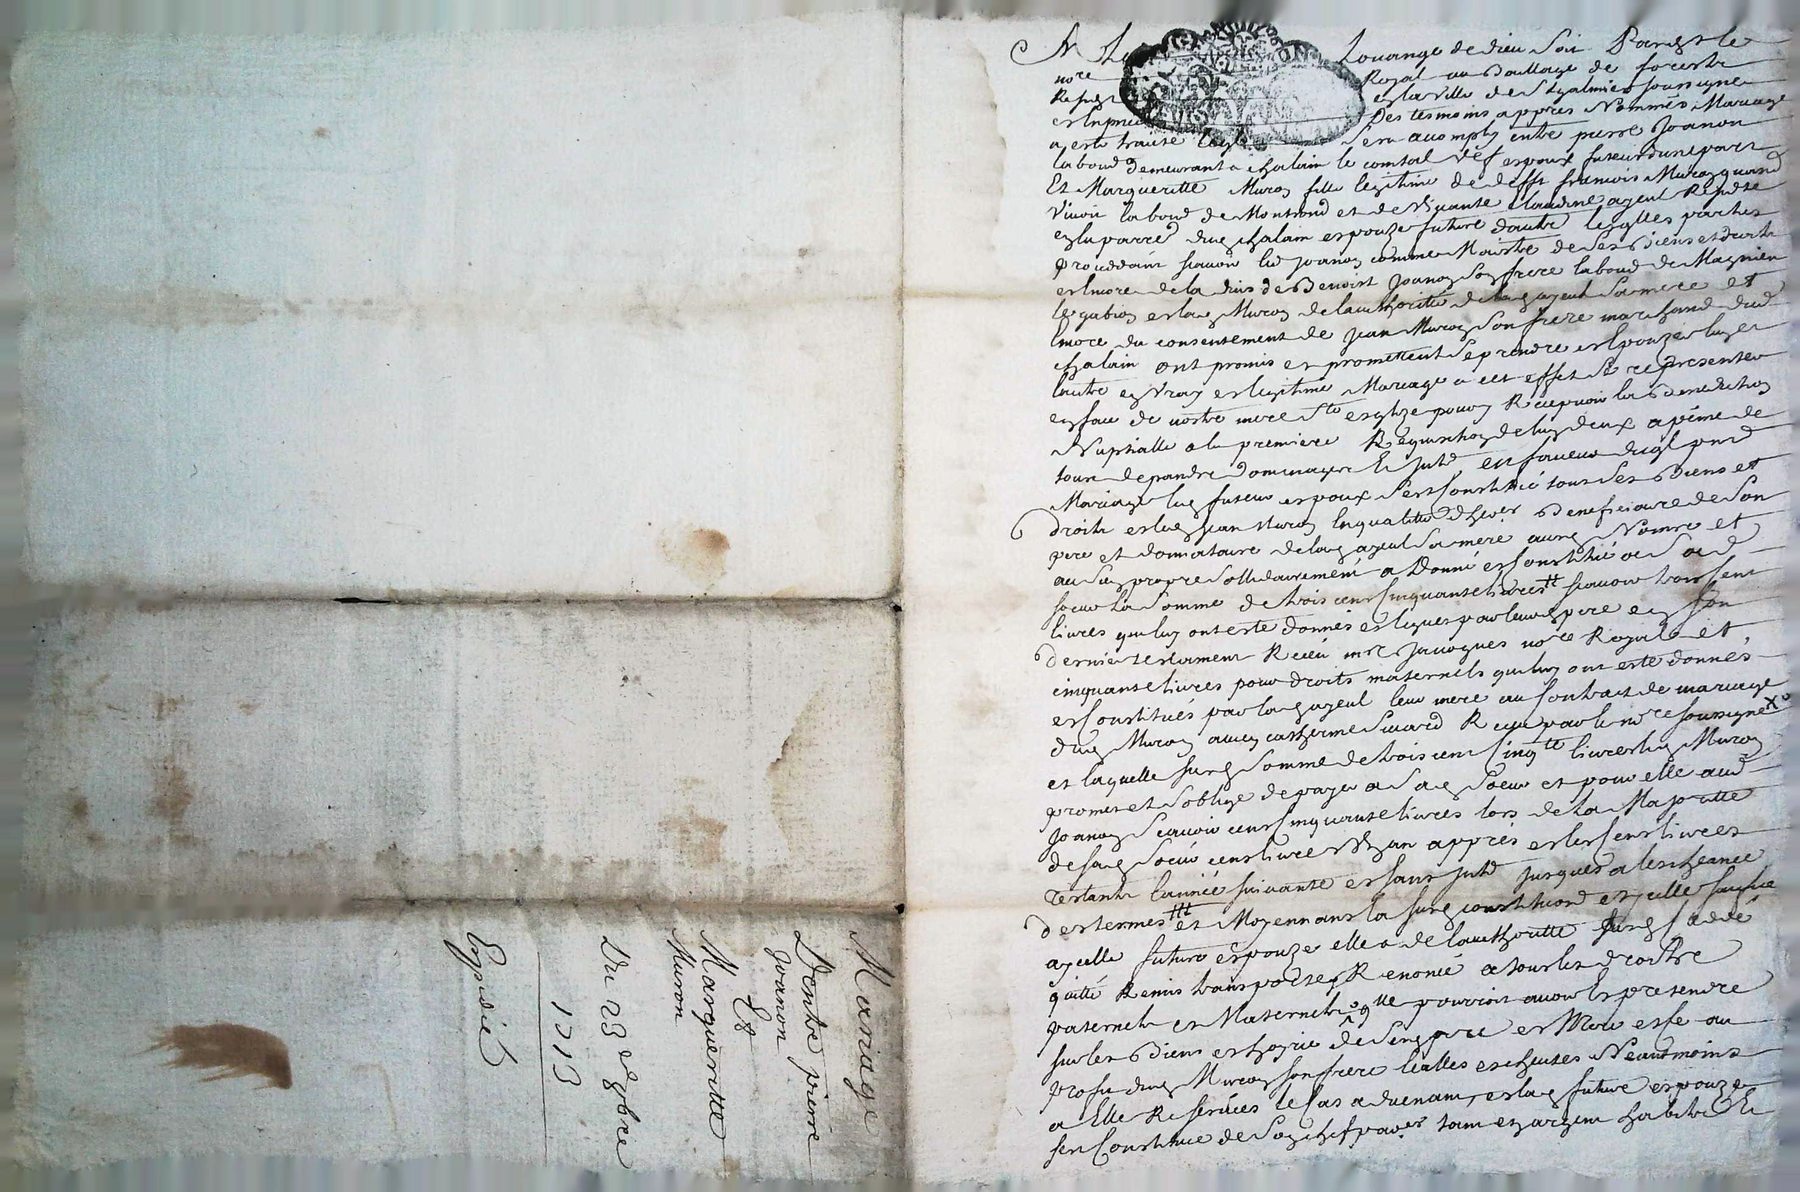 Mariage
Dentre pierre
Joanon
Et
Margueritte
Muron
Du 23 xbre
1713
Expedié
A La Louange de dieu Soit Pardevant le
no.re Royal au Bailliage de forestz
Resident en la ville de St galmier soussigné
et en presence des tesmoins apprès Nommés Mariage
a esté traité et sera acomply entre pierre Joanon
laboureur demeurant a chalain le comtal espoux futeur dune part
Et Margueritte Muron fille legitime de defft francois Muron quand
Vivoit laboureur de Montrond et de vivante Claudine ajeul Residte
en la parre dud chalain espouze future dautre lesqlles parties
proceddant scavoir led Joanon comme Maistre de ses Biens et droits
et encore de la de Benoist Joanon son frere laboureur de Magnieu
le gabion et lad Muron de lauthorité de lad ajeul sa mere et
encore du consentement de Jean Muron son frere marchand dud
chalain ont promis et promettent se prendre et espouzer lun et
lautre en vray et legitime Mariage a cet effet se representer
en face de nostre mere Ste esglize pour y Recepvoir la Benediction
Nuptialle a la premiere Requisition de lun deux a peine de
tous depandz dommages et en faveur duql
Mariage led futeur espoux sest constitué tous ses Biens et
droits et led Jean Muron en qualitté dher Beneficiaire de son
pere et donnataire de lad ajeul sa mere aud Nom et
au sien propre sollidairement a Donné et constitué a sad
soeur la somme de trois cens cinquante livres scavoir trois cens
livres qui luy ont esté donnés et legués par leur pere en son
dernier testament Receu mre Jacques no.re Royal et
cinquante livres pour droits maternels qui luy ont esté donnés
et constitués par lad ajeul leur mere au contract de mariage
dud Muron avec catherine Receu par le no.re soussigné
et laquelle susd somme de trois cens cinqte livres led Muron
promet et soblige de payer a sad soeur et pour elle aud
Joanon scavoir cens cinquante livres lors de la Majoritté
de sad soeur cens livres un an apprès et les cens livres
restants lannée suivante et sans jusques a lescheance
des termes et Moyennant la susd constitution et icelle
a icelle future espouze elle a de lauthoritté susd
quitté Remis transporté et Renoncé a tous les droits
paternels et Maternels qlle pouvoit avoir et pretendre
sur les Biens et hoyrie de sesd pere et Mere et ce au
profit dud Muron son frere telles escheutes Neantmoins
a Elle Reservées le cas advenant, et lad future espouze
sest Constitué de son chef tant en argent habits et